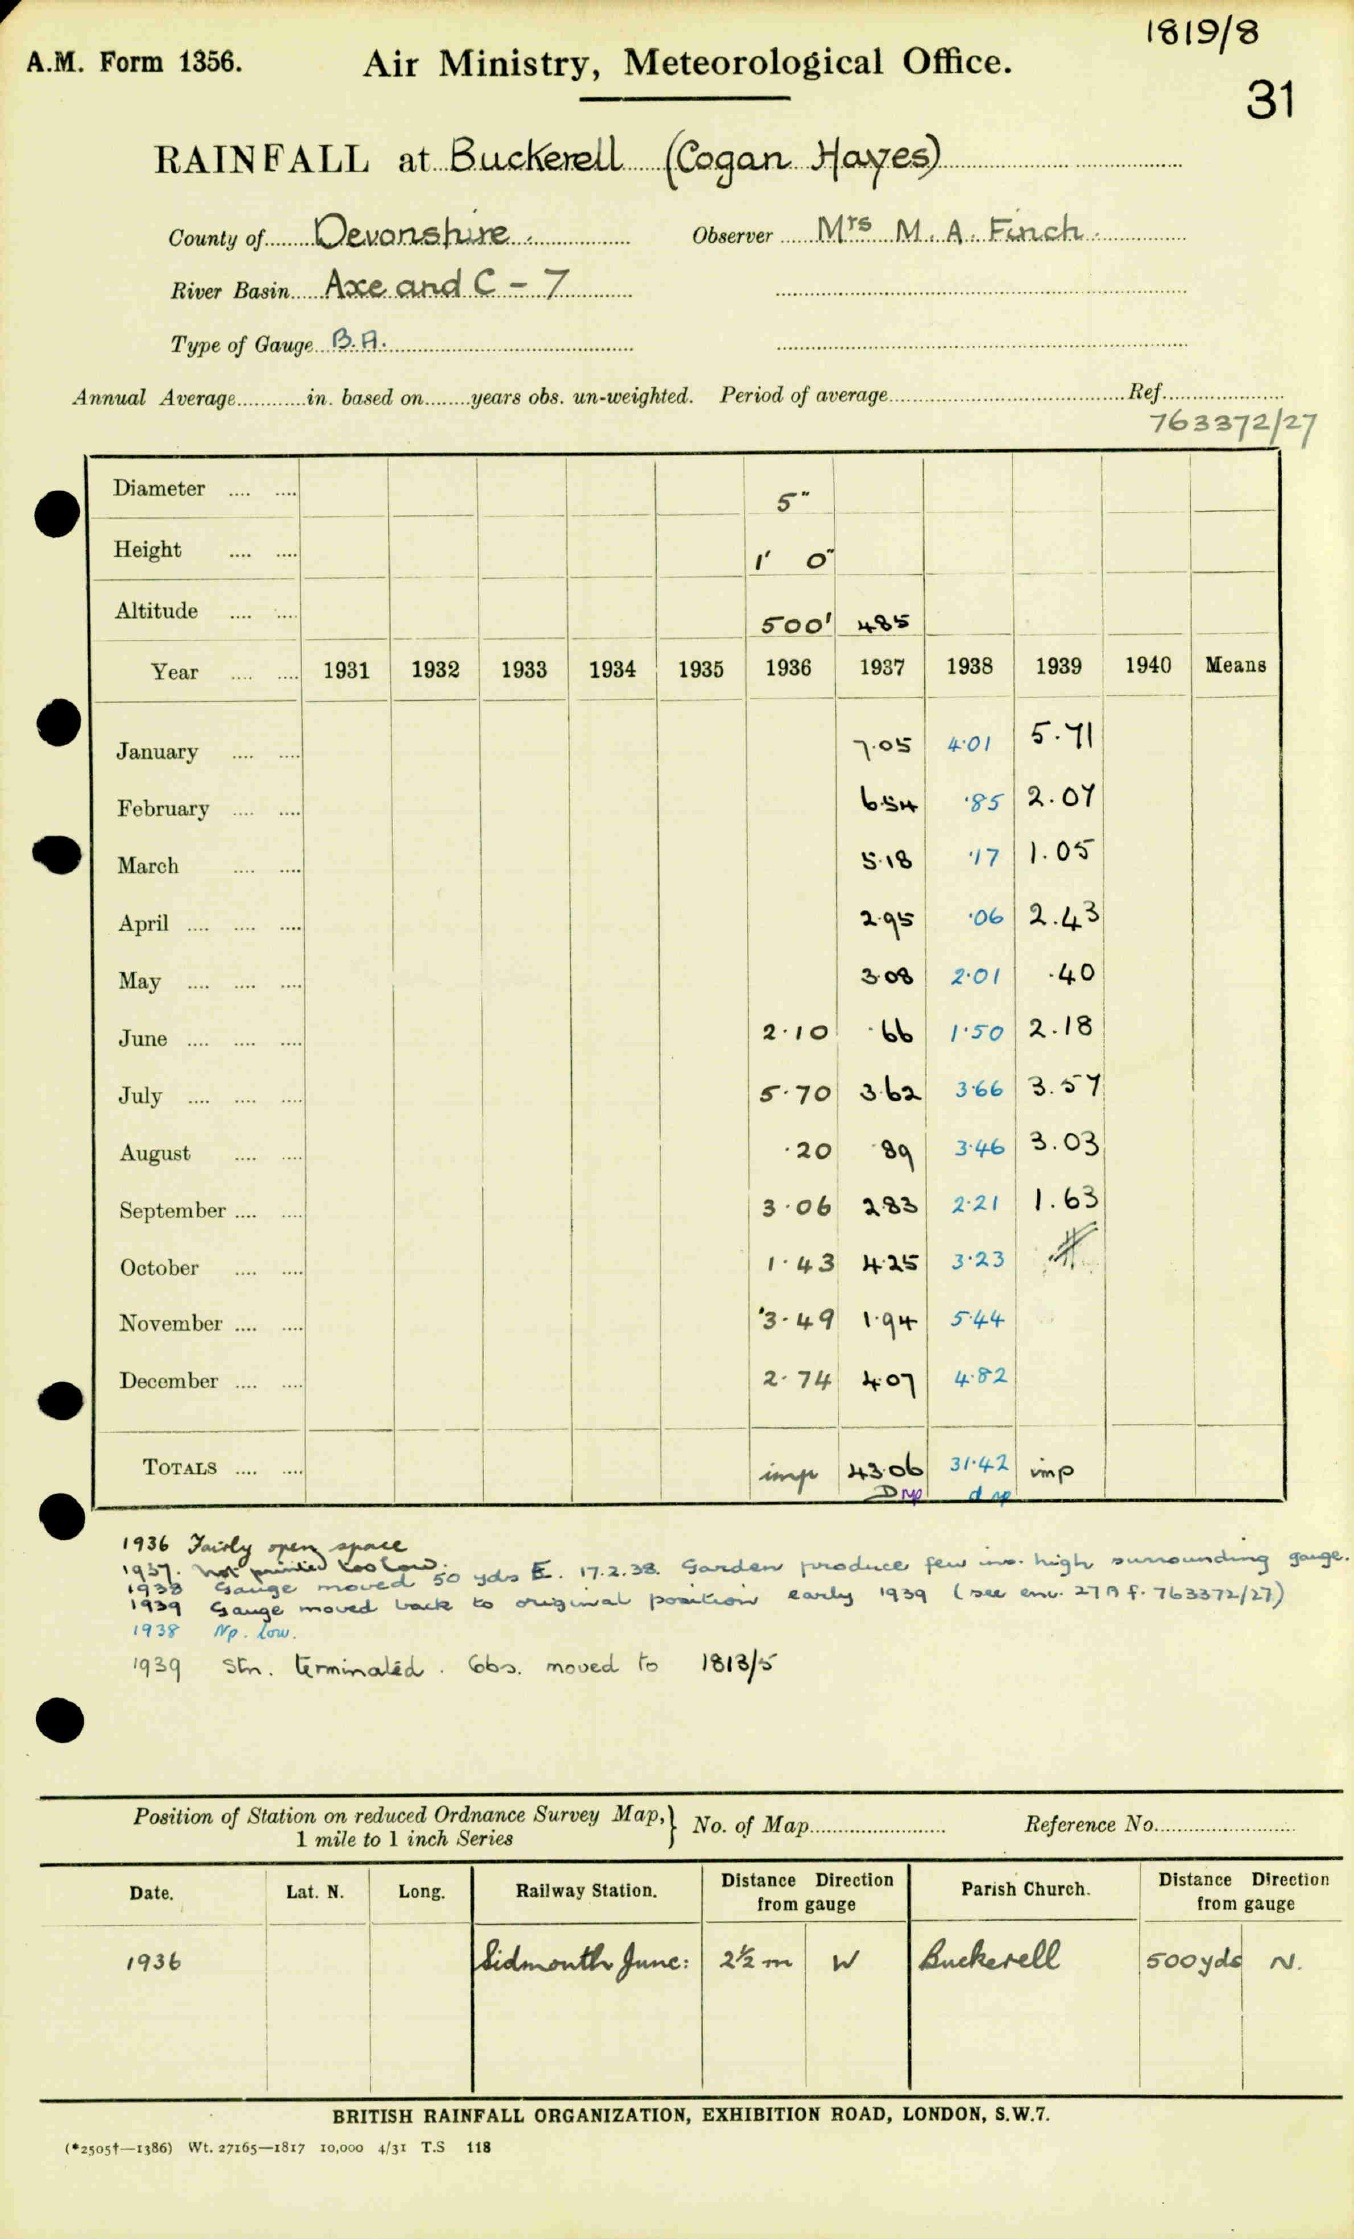 1819/8
A.M. Form 1356. Air Ministry, Meteorological Office.
31
RAINFALL at Buckerell (Cogan Hayes)
County of Devonshire. Observer Mrs M. A. Finch.
River Basin Axe and C - 7
Type of Gauge B.A.
Annual Average in. based on years obs. un-weighted. Period of average Ref.
763372/27
Diameter 5"
Height 1' 0"
Altitude 500' 485
Year 1931 1932 1933 1934 1935 1936 1937 1938 1939 1940 Means
January 7.05 4.01 5.71
February 6.54 .85 2.07
March 5.18 .17 1.05
April 2.95 .06 2.43
May 3.08 2.01 .40
June 2.10 .66 1.50 2.18
July 5.70 3.62 3.66 3.57
August .20 .89 3.46 3.03
September 3.06 2.83 2.21 1.63
October 1.43 4.25 3.23
November 3.49 1.94 5.44
December 2.74 4.07 4.82
TOTALS imp 43.06 31.42 imp
D np d np
1936 Fairly open space
1937. Not printed too low.
1938 Gauge moved 50 yds E. 17.2.38. Garden produce few ins. high surrounding gauge.
1939 Gauge moved back to original position early 1939 (see enc. 27A f. 763372/27)
1938 Np. low.
1939 Stn. terminated. Obs. moved to 1813/5
Position of Station on reduced Ordnance Survey Map, } No. of Map Reference No.
1 mile to 1 inch Series
Date. Lat. N. Long. Railway Station. Distance Direction from gauge Parish Church. Distance Direction from gauge
1936 Sidmouth Junc: 2½ m W Buckerell 500 yds N.
BRITISH RAINFALL ORGANIZATION, EXHIBITION ROAD, LONDON, S.W.7.
(*2505†—1386) Wt. 27165—1817 10,000 4/31 T.S 118